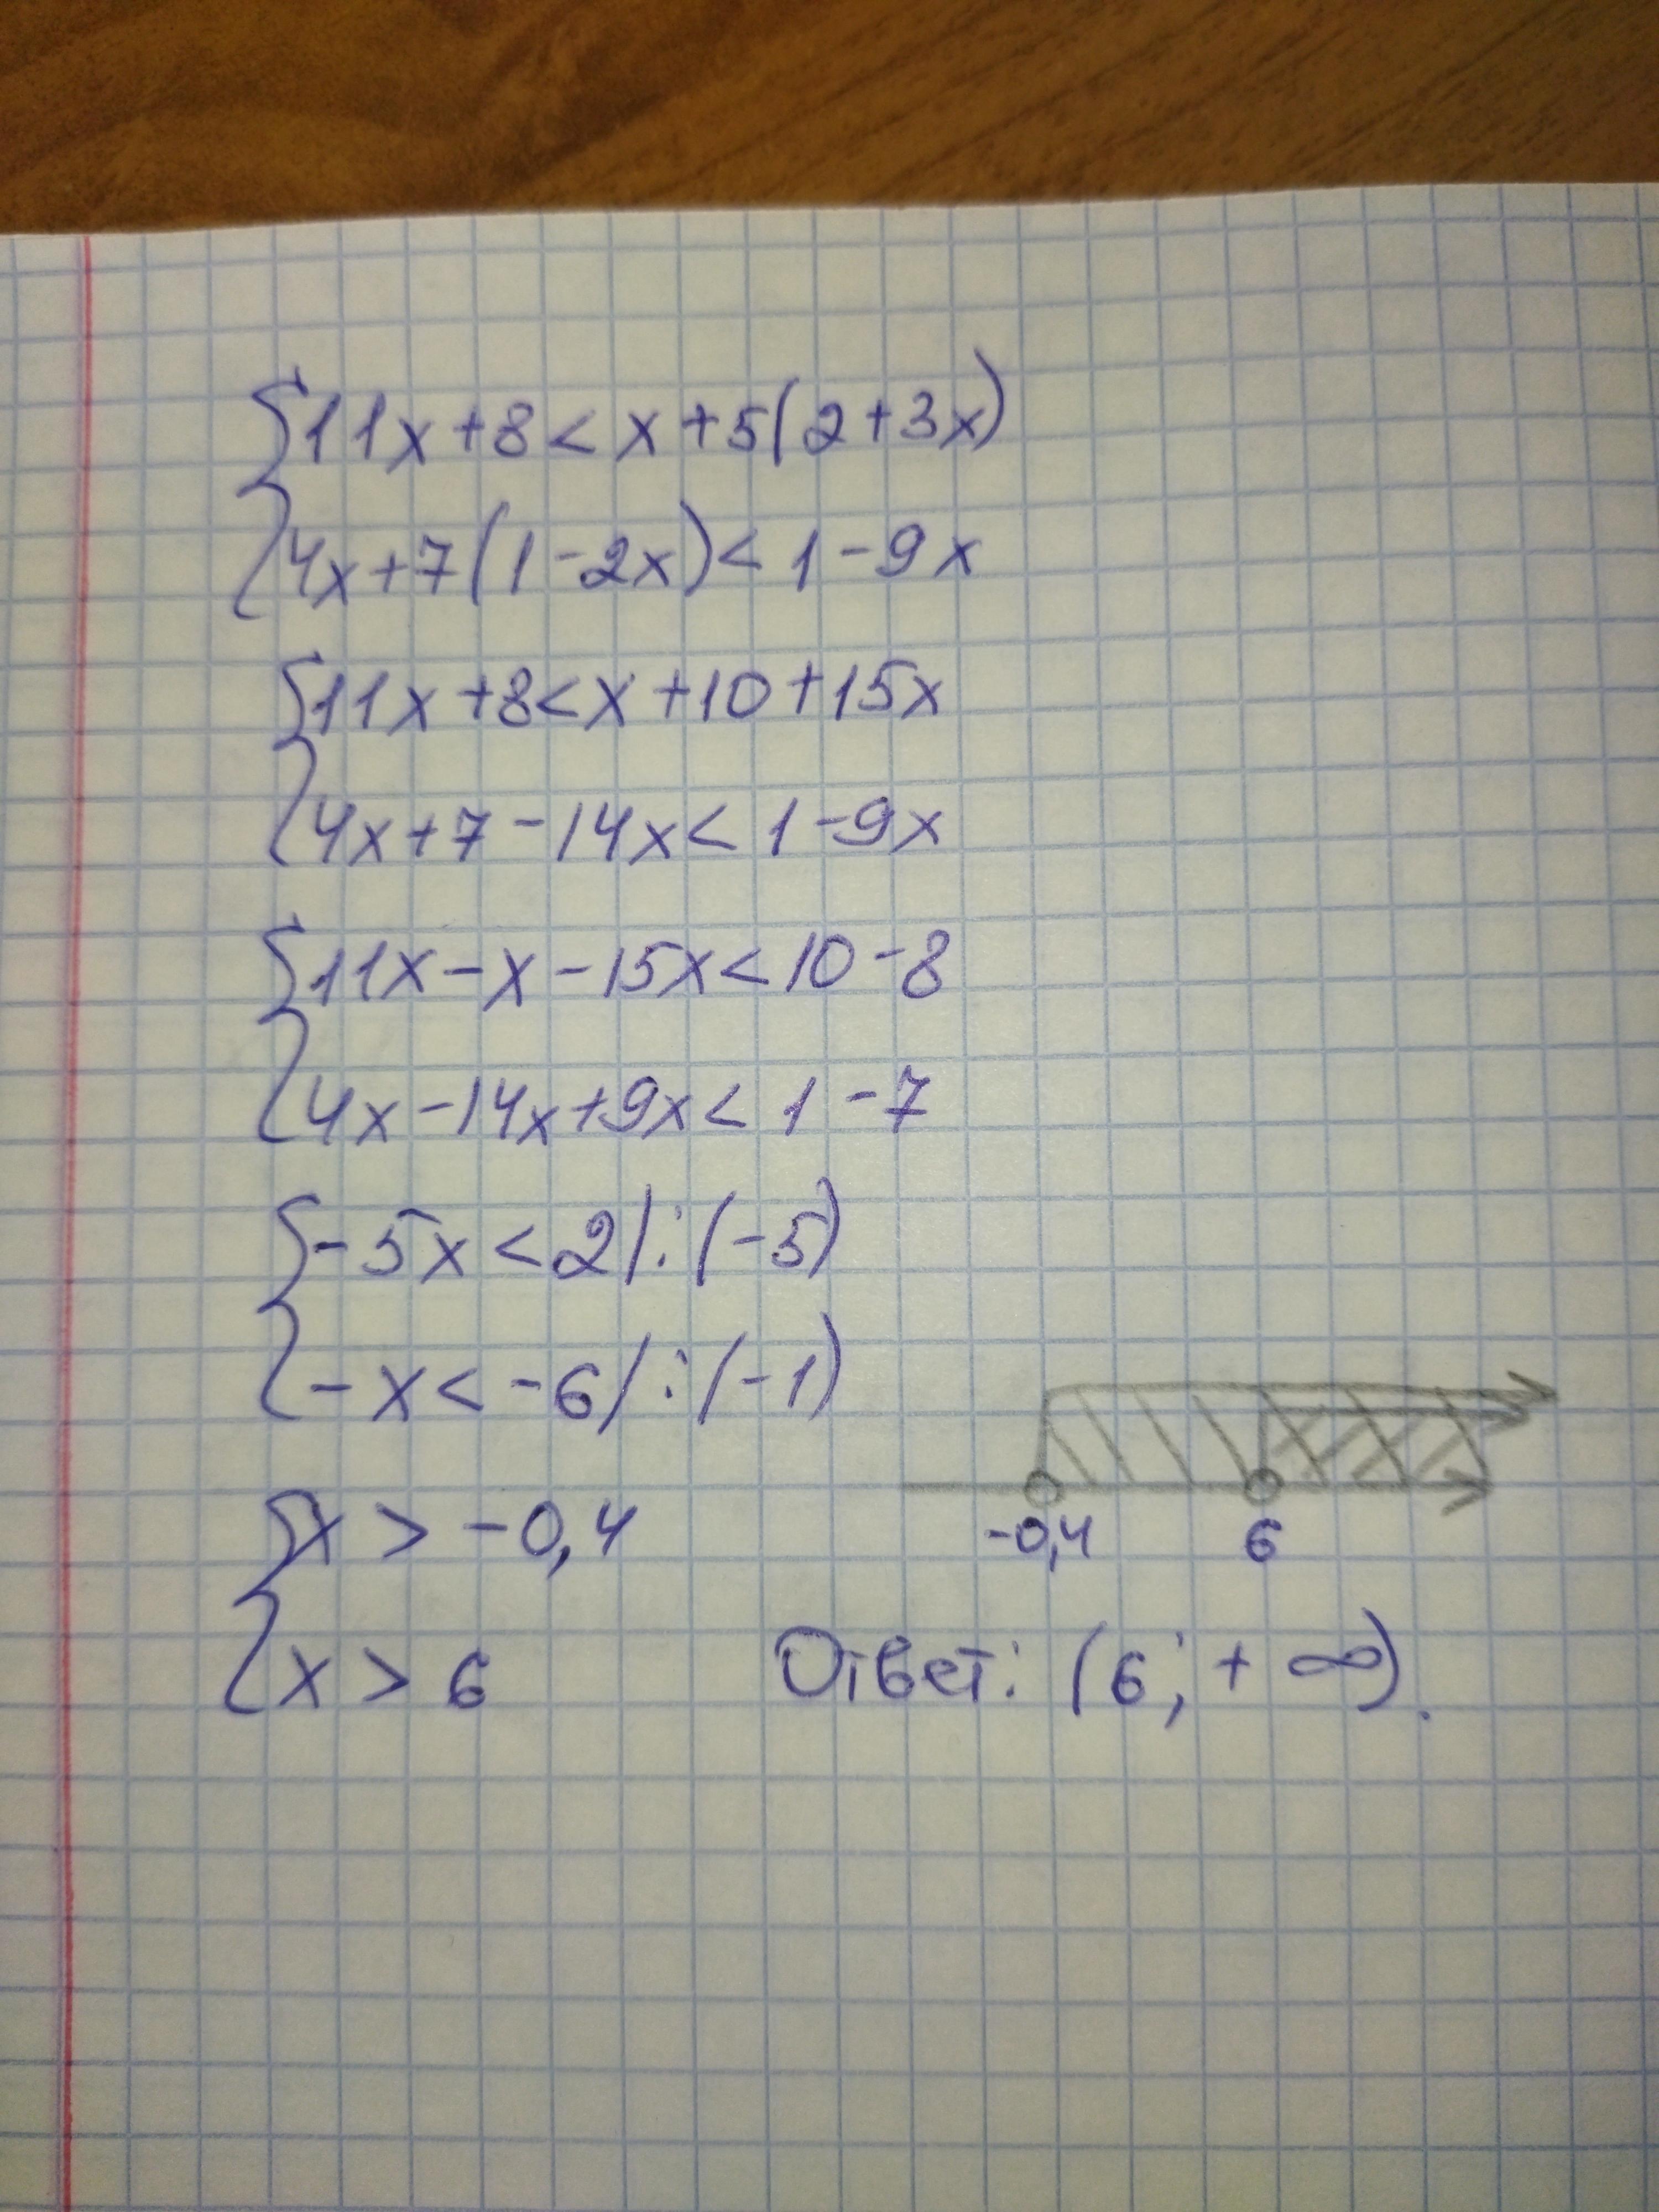 {11x+8<x+5(2+3x)
{4x+7(1-2x)<1-9x
{11x+8<x+10+15x
{4x+7-14x<1-9x
{11x-x-15x<10-8
{4x-14x+9x<1-7
{-5x<2|:(-5)
{-x<-6|:(-1)
{x>-0,4
{x>6
-0,4 6
Ответ: (6;+∞).